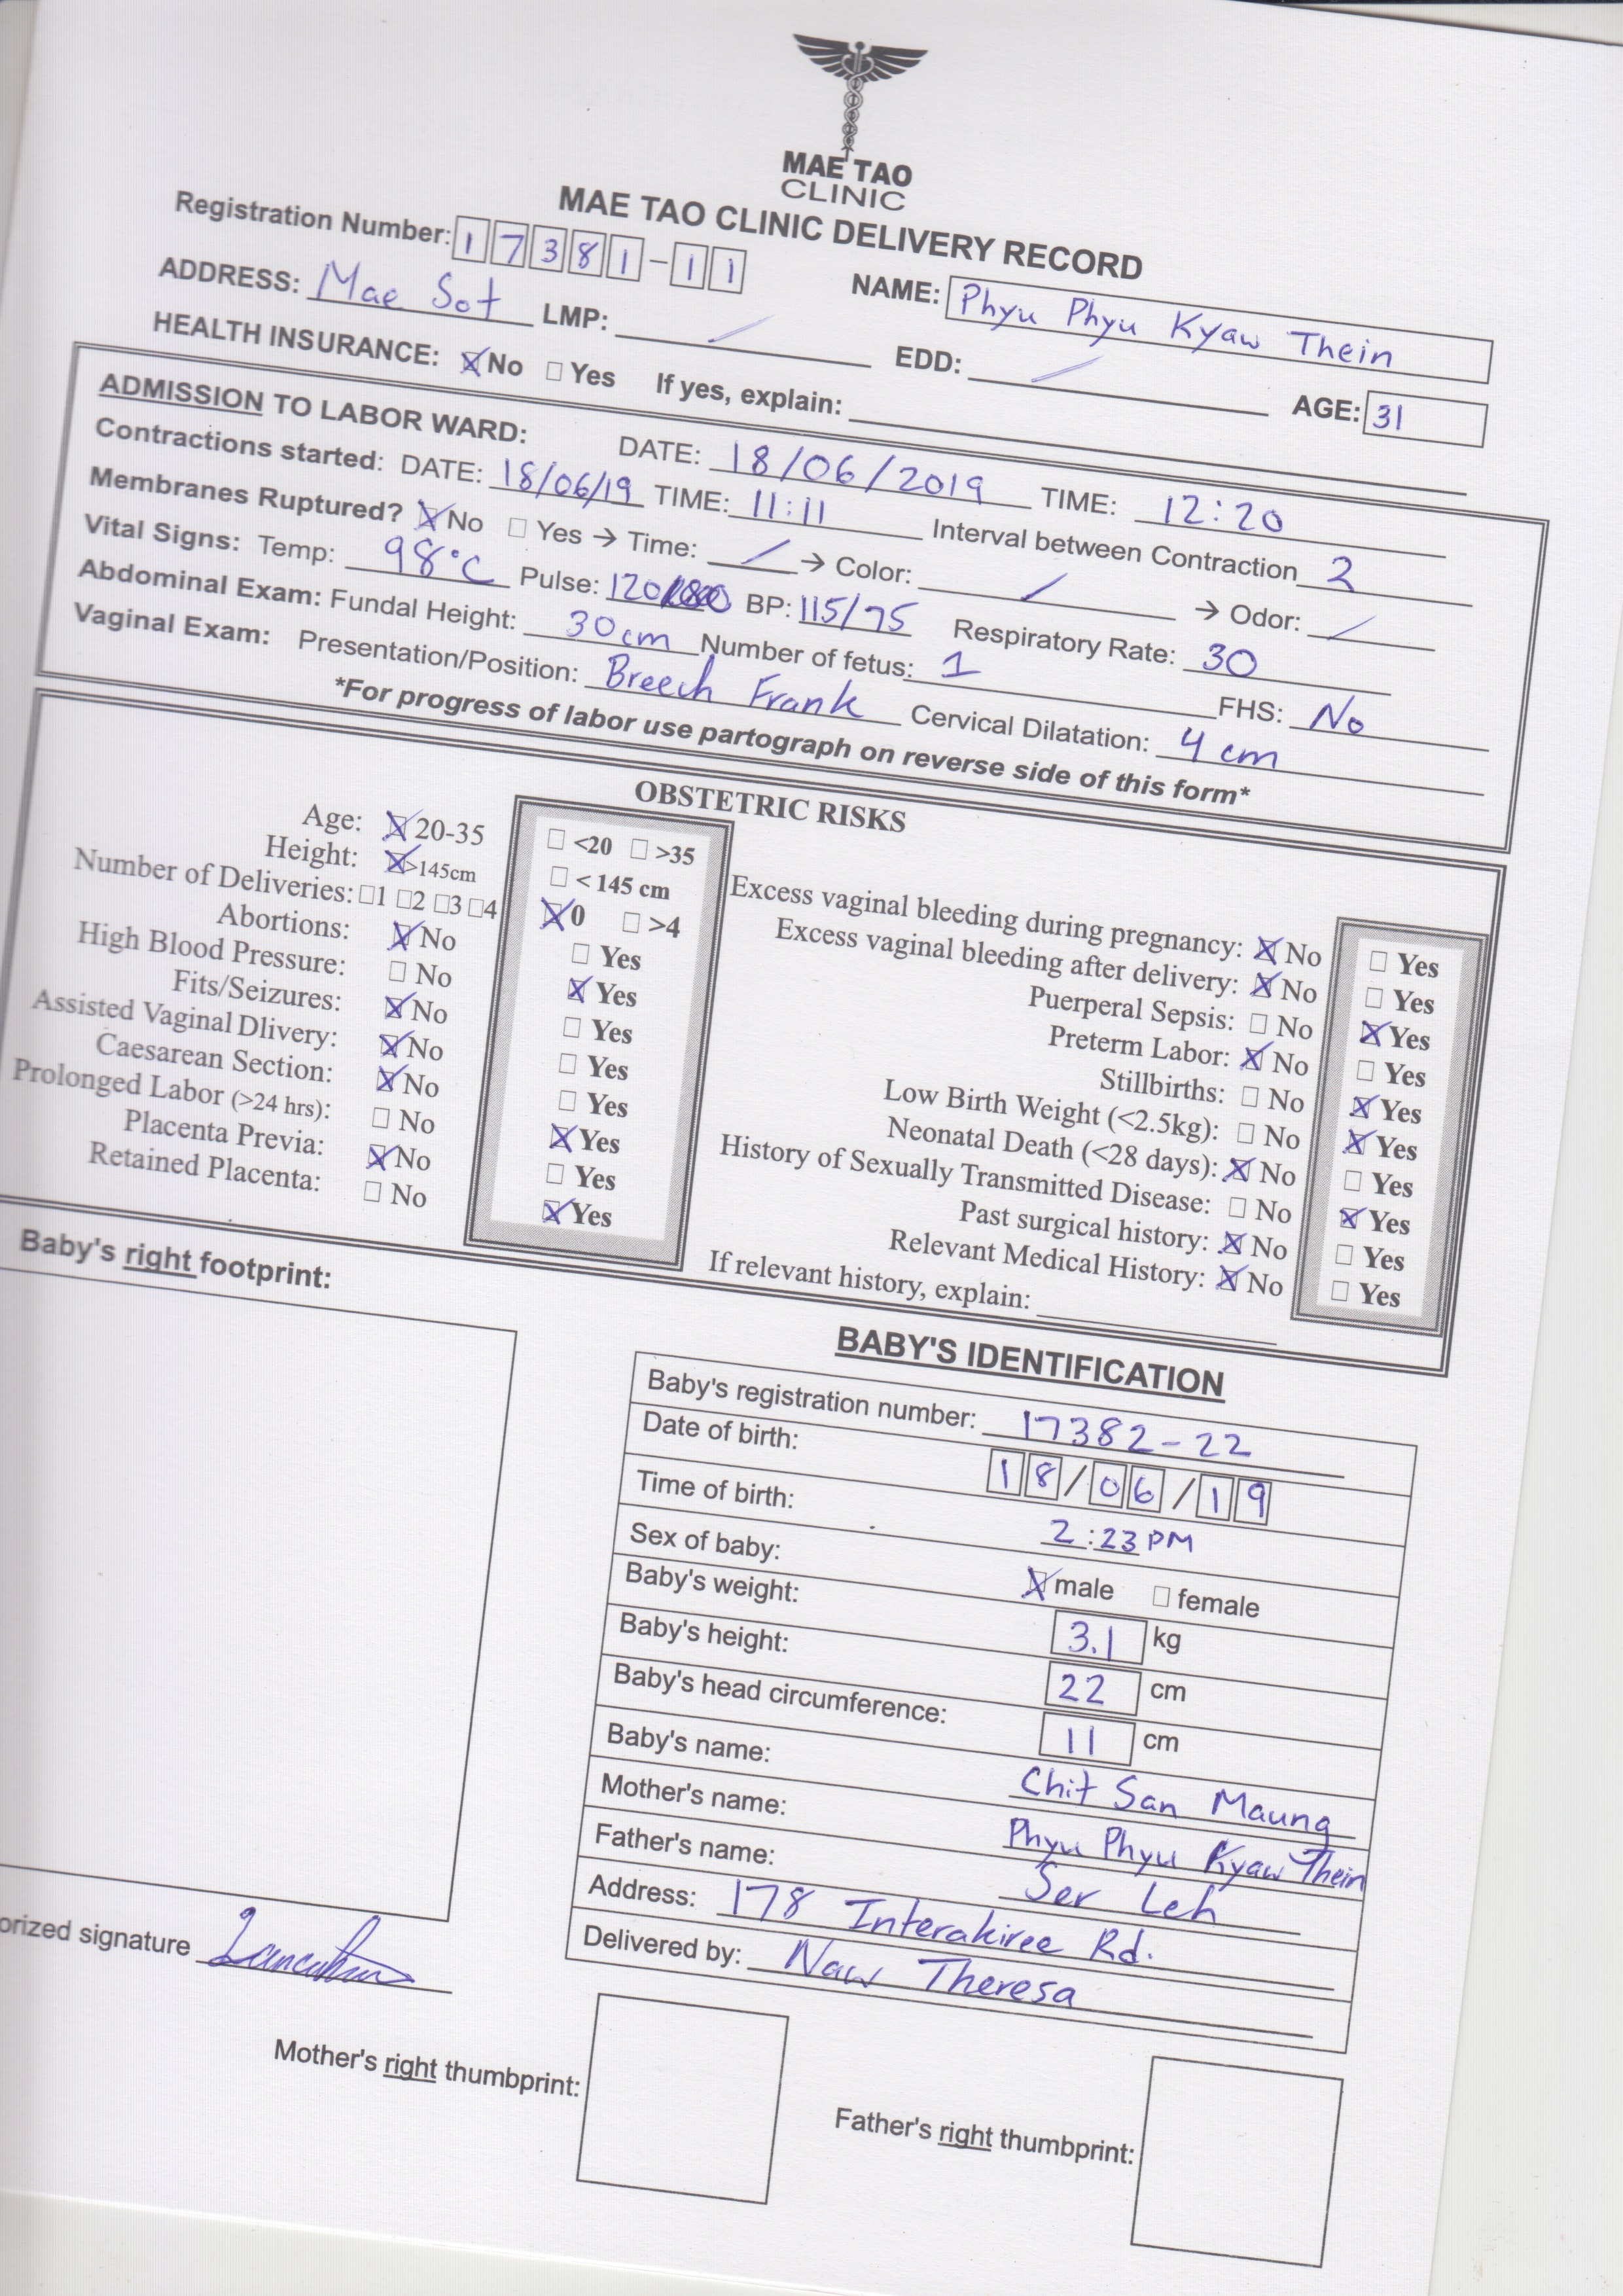 MAE TAO
CLINIC
MAE TAO CLINIC DELIVERY RECORD
Registration Number: 17381-11
NAME: Phyu Phyu Kyaw Thein
ADDRESS: Mae Sot LMP: / EDD: / AGE: 31
HEALTH INSURANCE: ☒ No ☐ Yes If yes, explain:
ADMISSION TO LABOR WARD: DATE: 18/06/2019 TIME: 12:20
Contractions started: DATE: 18/06/19 TIME: 11:11 Interval between Contraction 2
Membranes Ruptured? ☒ No ☐ Yes → Time: / → Color: / → Odor: /
Vital Signs: Temp: 98°C Pulse: 120 BP: 115/75 Respiratory Rate: 30
Abdominal Exam: Fundal Height: 30cm Number of fetus: 1 FHS: No
Vaginal Exam: Presentation/Position: Breech Frank Cervical Dilatation: 4 cm
*For progress of labor use partograph on reverse side of this form*
OBSTETRIC RISKS
Age: ☒ 20-35 ☐ <20 ☐ >35
Height: ☒ >145cm ☐ < 145 cm
Number of Deliveries: ☐1 ☐2 ☐3 ☐4 ☒ 0 ☐ >4
Abortions: ☒ No ☐ Yes
High Blood Pressure: ☐ No ☒ Yes
Fits/Seizures: ☒ No ☐ Yes
Assisted Vaginal Dlivery: ☒ No ☐ Yes
Caesarean Section: ☒ No ☐ Yes
Prolonged Labor (>24 hrs): ☐ No ☒ Yes
Placenta Previa: ☒ No ☐ Yes
Retained Placenta: ☐ No ☒ Yes
Excess vaginal bleeding during pregnancy: ☒ No ☐ Yes
Excess vaginal bleeding after delivery: ☒ No ☐ Yes
Puerperal Sepsis: ☐ No ☒ Yes
Preterm Labor: ☒ No ☐ Yes
Stillbirths: ☐ No ☒ Yes
Low Birth Weight (<2.5kg): ☐ No ☒ Yes
Neonatal Death (<28 days): ☒ No ☐ Yes
History of Sexually Transmitted Disease: ☐ No ☒ Yes
Past surgical history: ☒ No ☐ Yes
Relevant Medical History: ☒ No ☐ Yes
If relevant history, explain:
Baby's right footprint:
BABY'S IDENTIFICATION
Baby's registration number: 17382-22
Date of birth: 18/06/19
Time of birth: 2:23 PM
Sex of baby: ☒ male ☐ female
Baby's weight: 3.1 kg
Baby's height: 22 cm
Baby's head circumference: 11 cm
Baby's name: Chit San Maung
Mother's name: Phyu Phyu Kyaw Thein
Father's name: Ser Leh
Address: 178 Interakiree Rd.
Delivered by: Naw Theresa
orized signature
Mother's right thumbprint:
Father's right thumbprint: